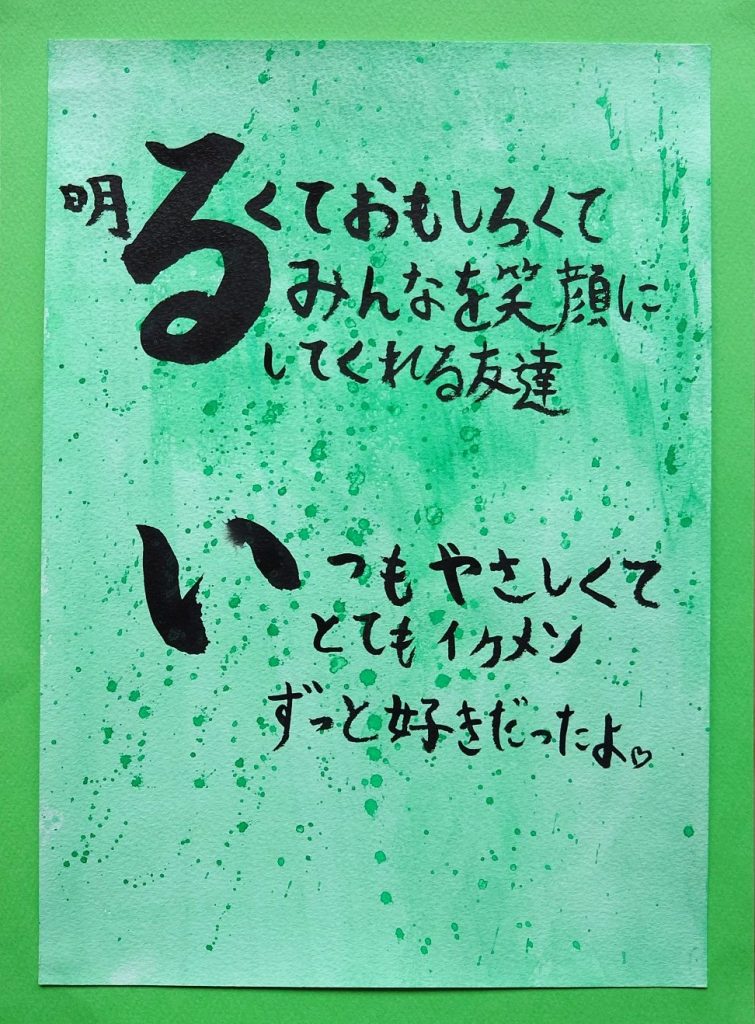 明るくておもしろくて
みんなを笑顔に
してくれる友達
いつもやさしくて
とてもイケメン
ずっと好きだったよ♡